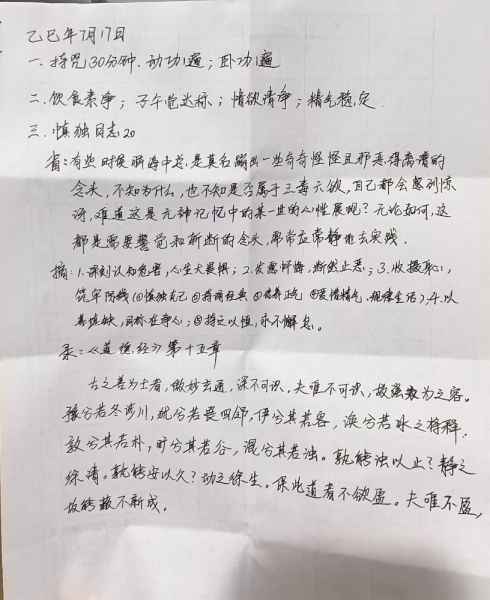 乙巳年7月17日
一、持咒30分钟、动功1遍；卧功1遍
二、饮食素净；子午觉达标；情欲清净；精气稳定。
三、慎独日志20
省：有些时候脑海中总是莫名蹦出一些奇奇怪怪且邪恶得离谱的
念头，不知为什么，也不知是否属于三毒六欲，自己都会感到惊
讶，难道这是元神记忆中的某一世的人性展现？无论如何，这
都是需要警觉和斩断的念头，常常应常静地去实践。
摘：1.深刻认知危害，心生大畏惧；2.发愿忏悔，断然止恶；3.收摄身心，
筑牢防线（①慎独自己②持诵经典③培养正气④爱惜精气、规律生活）；4.以
善填缺，回标在净心；⑤持之以恒，永不懈怠。
录：《道德经》第十五章
古之善为士者，微妙玄通，深不可识，夫唯不可识，故强为之容。
豫兮若冬涉川，犹兮若畏四邻，俨兮其若客，涣兮若冰之将释，
敦兮其若朴，旷兮其若谷，混兮其若浊。孰能浊以止？静之
徐清。孰能安以久？动之徐生。保此道者不欲盈。夫唯不盈，
故能蔽不新成。